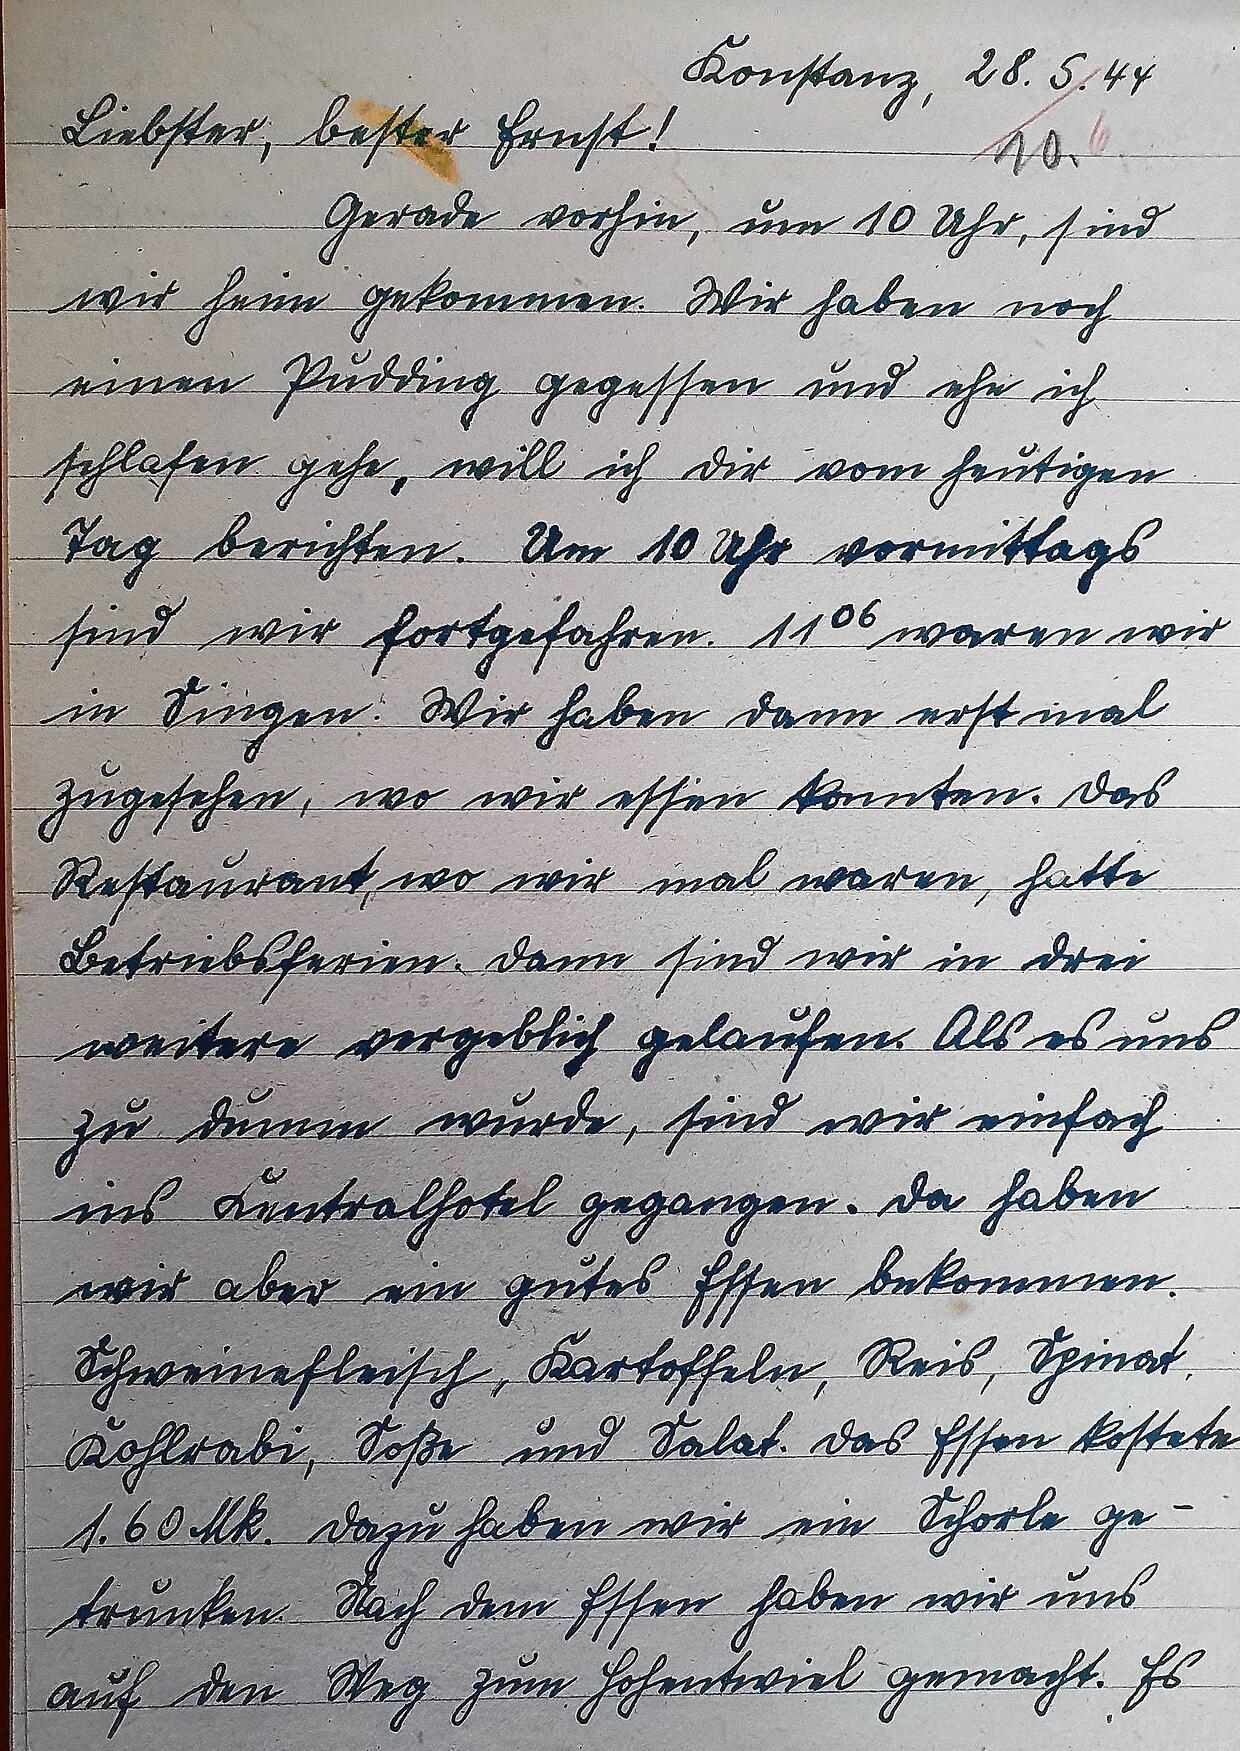 Konstanz, 28. 5. 44
10. 6.
Liebster, bester Ernst!
Gerade vorhin, um 10 Uhr, sind
wir heim gekommen. Wir haben noch
einen Pudding gegessen und ehe ich
schlafen gehe, will ich dir vom heutigen
Tag berichten. Um 10 Uhr vormittags
sind wir fortgefahren. 11⁰⁶ waren wir
in Singen. Wir haben dann erst mal
zugesehen, wo wir essen konnten. Das
Restaurant, wo wir mal waren, hatte
Betriebsferien. Dann sind wir in drei
weitere vergeblich gelaufen. Als es uns
zu dumm wurde, sind wir einfach
ins Centralhotel gegangen. Da haben
wir aber ein gutes Essen bekommen.
Schweinefleisch, Kartoffeln, Reis, Spinat,
Kohlrabi, Soße und Salat. Das Essen kostete
1.60 Mk. Dazu haben wir ein Schorle ge-
trunken. Nach dem Essen haben wir uns
auf den Weg zum Hohentwiel gemacht. Es